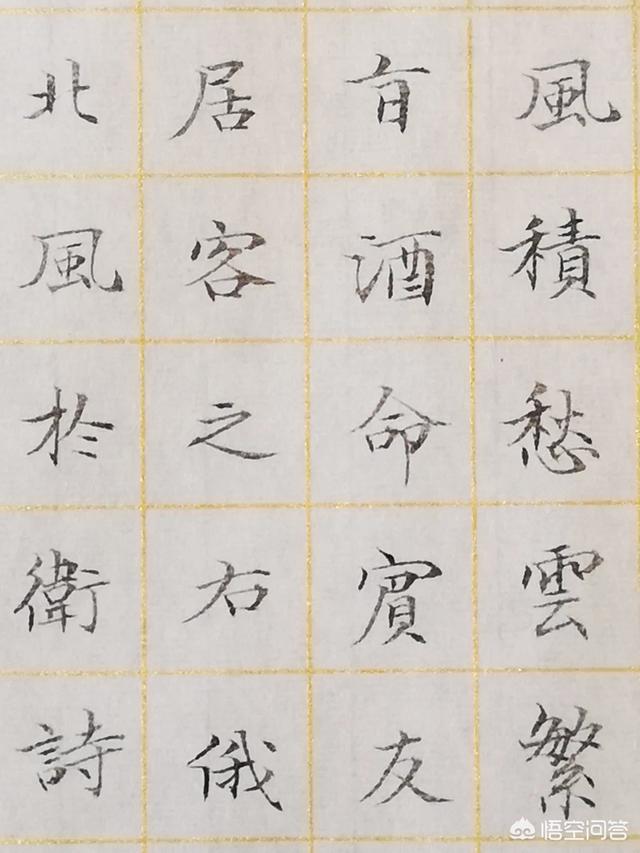 風積愁雲繁
旨酒命賓友
居客之右俄
北風於衛詩
悟空问答